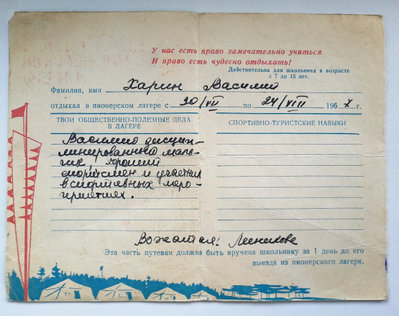 У нас есть право замечательно учиться
И право есть чудесно отдыхать!
Действительна для школьника в возрасте
с 7 до 15 лет.
Фамилия, имя Харин Василий
отдыхал в пионерском лагере с 30/VII по 24/VIII 196 г.
ТВОИ ОБЩЕСТВЕННО-ПОЛЕЗНЫЕ ДЕЛА
В ЛАГЕРЕ
СПОРТИВНО-ТУРИСТСКИЕ НАВЫКИ
Василий дисцип-
линированный маль-
чик, хороший
спортсмен и участник
в спортивных меро-
приятиях.
Вожатая:
Эта часть путевки должна быть вручена школьнику за 1 день до его
выезда из пионерского лагеря.